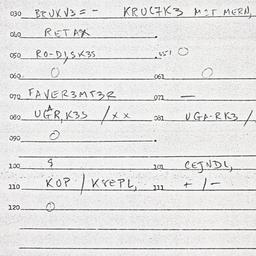 030 BEUKV3 = - KRUC7K3 M=T MERN,
040 RETAX
050 RO-D,SK3S 051 O
060 O 061 O
070 FAVER3MT3R 071 —
080 UGR,K3S / x x 081 UGA-RK3 /
090 O
100 101 CEJNDL,
110 KOP / KREPL, 111 + / -
120 O